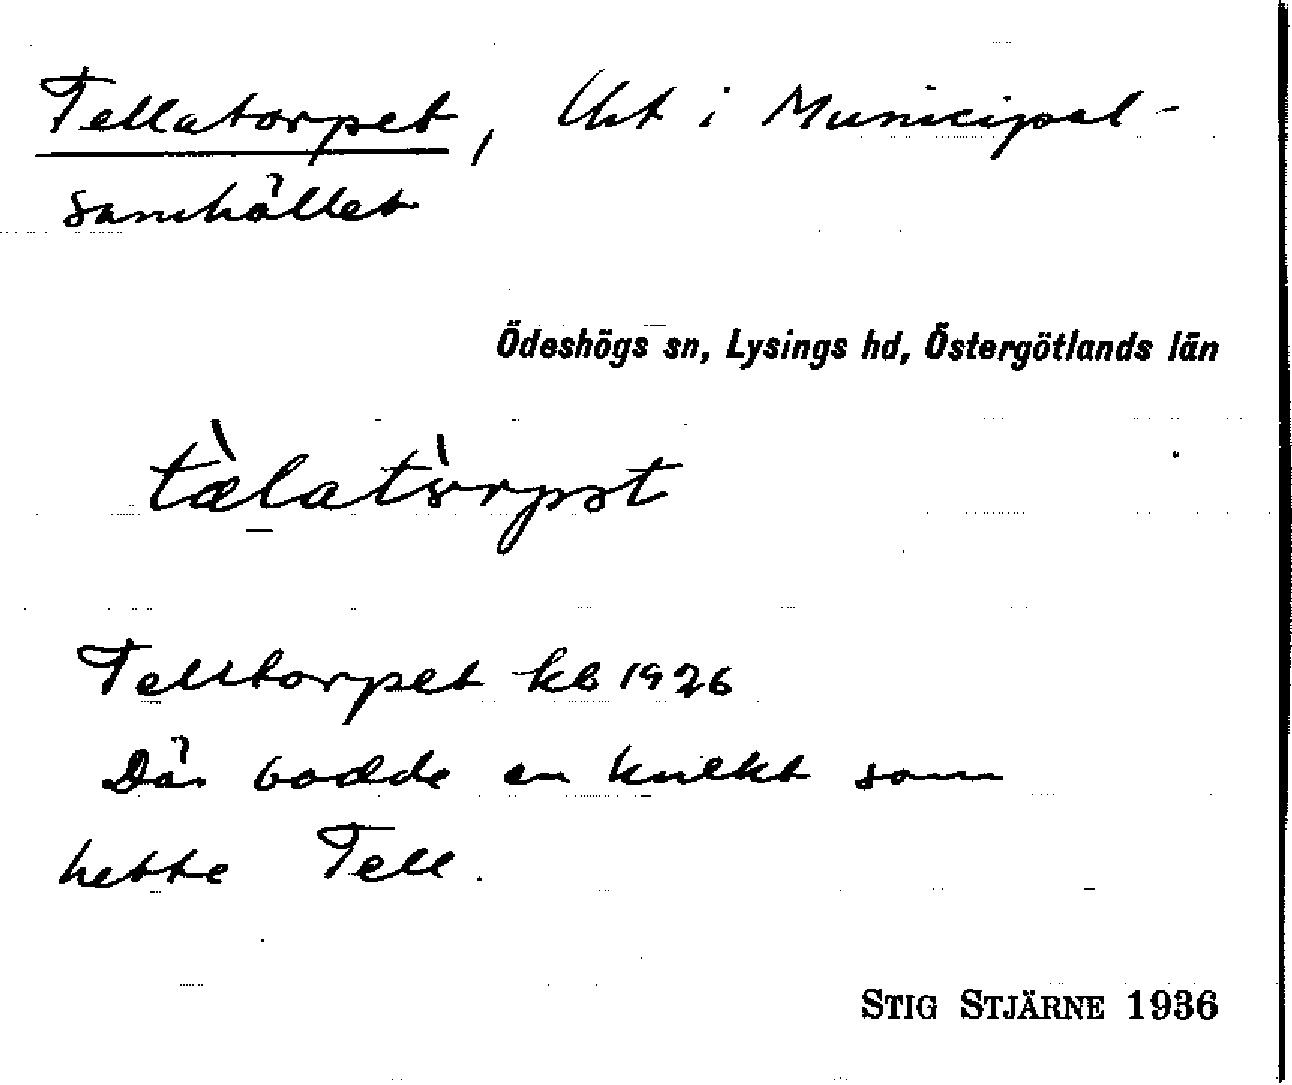 Tellatorpet, Uht i Municipal-
samhället
Ödeshögs sn, Lysings hd, Östergötlands län
tælatorpət
Telltorpet kb 1926
Där bodde en knekt som
hette Tell.
STIG STJÄRNE 1936